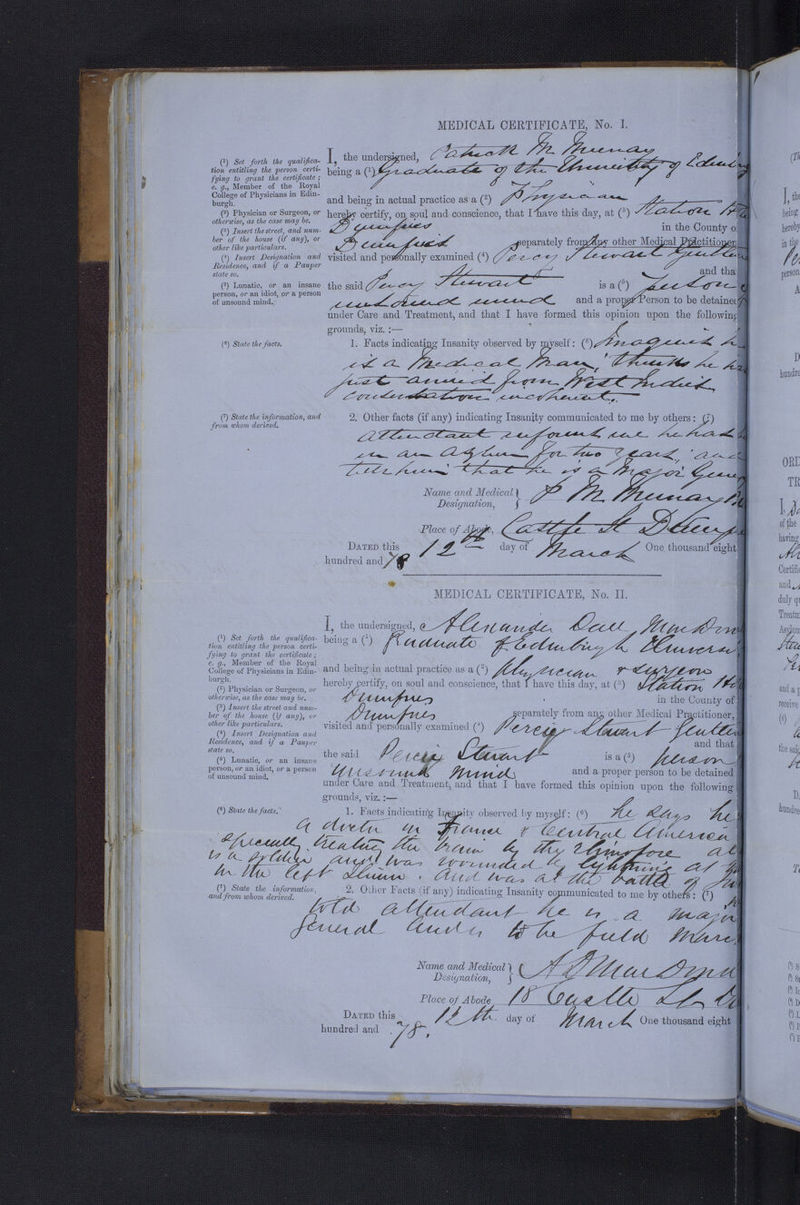 MEDICAL CERTIFICATE, No. I.
(1) Set forth the qualification entitling the person certifying to grant the certificate; e. g., Member of the Royal College of Physicians in Edinburgh.
(2) Physician or Surgeon, or otherwise, as the case may be.
(3) Insert the street, and number of the house (if any), or other like particulars.
(4) Insert Designation and Residence, and if a Pauper state so.
(5) Lunatic, or an insane person, or an idiot, or a person of unsound mind.
I, the undersigned, Patrick M. Murray
being a (1) Graduate of the University of Edin
and being in actual practice as a (2) Physician
hereby certify, on soul and conscience, that I have this day, at (3) Station
Dumfries in the County o
Dumfries separately from any other Medical Practitioner,
visited and personally examined (4) Percy Stewart Gentlem
and tha
the said Percy Stewart is a (5) person
unsound mind and a proper Person to be detained
under Care and Treatment, and that I have formed this opinion upon the following
grounds, viz. :—
(6) State the facts.
1. Facts indicating Insanity observed by myself: (6) Imagines h
is a Medical Man, thinks he ha
just arrived from West Indies
incoherent.
(7) State the information, and from whom derived.
2. Other facts (if any) indicating Insanity communicated to me by others: (7)
Attendant informs me he has
in an Asylum for two years, and
tells him that he is a Major Gene
Name and Medical Designation, P M Murray
Place of Abode, Castle St Dumf
DATED this 12th day of March One thousand eight
hundred and 78
MEDICAL CERTIFICATE, No. II.
(1) Set forth the qualification entitling the person certifying to grant the certificate; e. g., Member of the Royal College of Physicians in Edinburgh.
(2) Physician or Surgeon, or otherwise, as the case may be.
(3) Insert the street and number of the house (if any), or other like particulars.
(4) Insert Designation and Residence, and if a Pauper state so.
(5) Lunatic, or an insane person, or an idiot, or a person of unsound mind.
I, the undersigned, Alexander
being a (1) Graduate of Edinburgh Univers
and being in actual practice as a (2) Physician & Surgeon
hereby certify, on soul and conscience, that I have this day, at (3) Station
Dumfries in the County of
Dumfries separately from any other Medical Practitioner,
visited and personally examined (4) Percy Stewart Gentlem
and that
the said Percy Stewart is a (5) person
unsound mind and a proper person to be detained
under Care and Treatment, and that I have formed this opinion upon the following
grounds, viz. :—
(6) State the facts.
1. Facts indicating Insanity observed by myself: (6) he says he
a in France & Central America
especially treating the brain by the
is a soldier and was wounded by lightning at
in the left and was at the battle of
(7) State the information, and from whom derived.
2. Other Facts (if any) indicating Insanity communicated to me by others: (7)
told attendant he is a major
general and is to be field Mars
Name and Medical Designation,
Place of Abode 18 Castle St D
DATED this 12th day of March One thousand eight
hundred and 78.